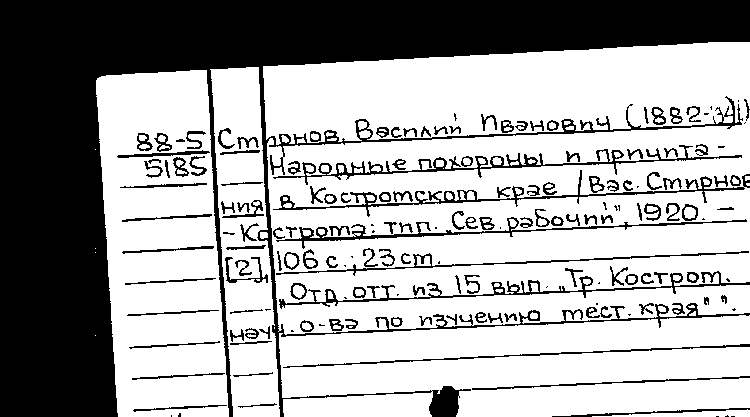 88-5 Смирнов, Василий Иванович (1882-1941)
5185 Народные похороны и причита-
ния в Костромском крае / Вас. Смирнов
- Кострома: тип. „Сев. рабочий", 1920. -
[2], 106 с.; 23 см.
„Отд. отт. из 15 вып. „Тр. Костром.
науч. о-ва по изучению мест. края" ".